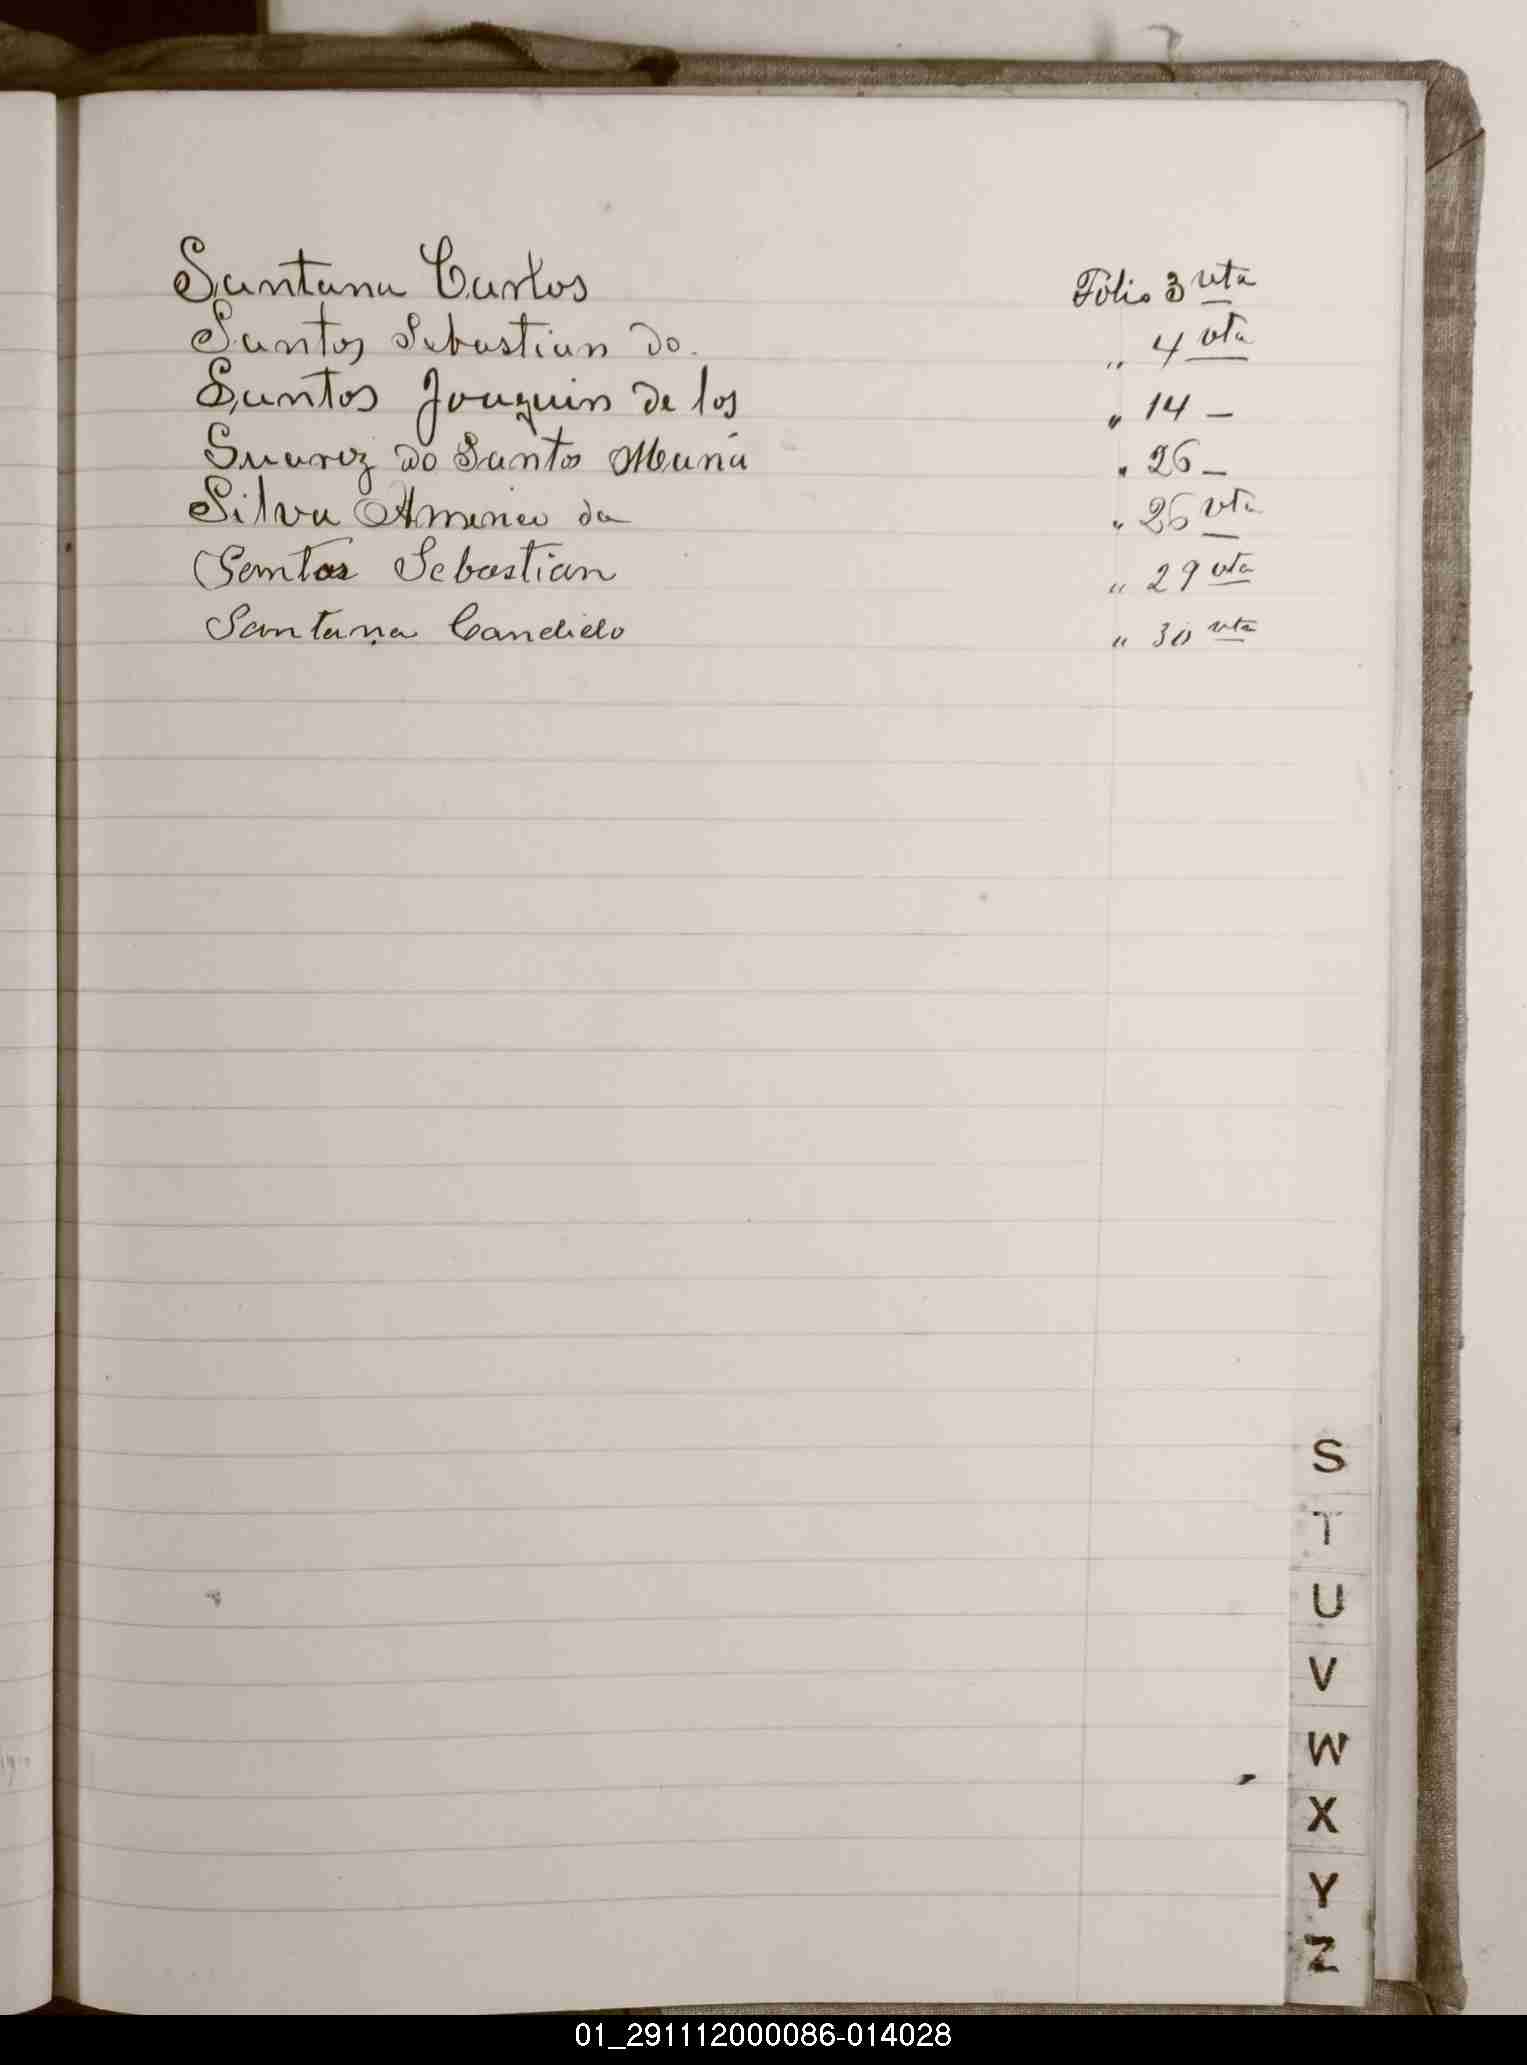 Santana Carlos Folio 3 vta
Santos Sebastian do. " 4 vta
Santos Joaquin de los " 14 -
Suarez do Santos Maria " 26 -
Silva Americo da " 26 vta
Santos Sebastian " 29 vta
Santana Candido " 30 vta
S
T
U
V
W
X
Y
Z
01_291112000086-014028